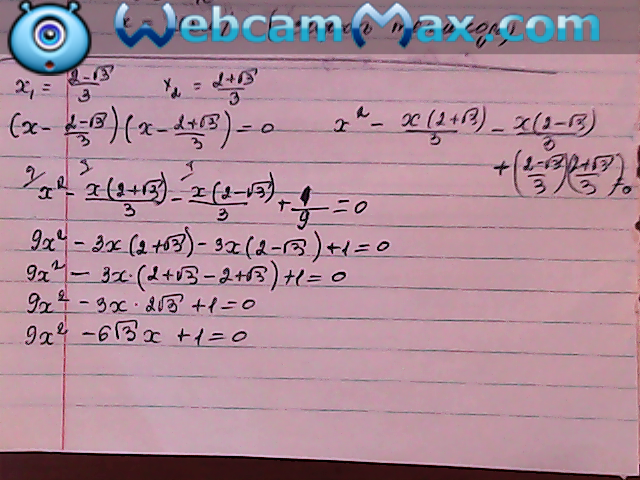 WebcamMax.com
x₁ = (2-√3)/3   x₂ = (2+√3)/3
(x - (2-√3)/3)(x - (2+√3)/3) = 0
x² - x(2+√3)/3 - x(2-√3)/3
+ ((2-√3)/3)((2+√3)/3) = 0
9 3 3
x² - x(2+√3)/3 - x(2-√3)/3 + 1/9 = 0
9x² - 3x(2+√3) - 3x(2-√3) + 1 = 0
9x² - 3x·(2+√3-2+√3) + 1 = 0
9x² - 3x·2√3 + 1 = 0
9x² - 6√3 x + 1 = 0